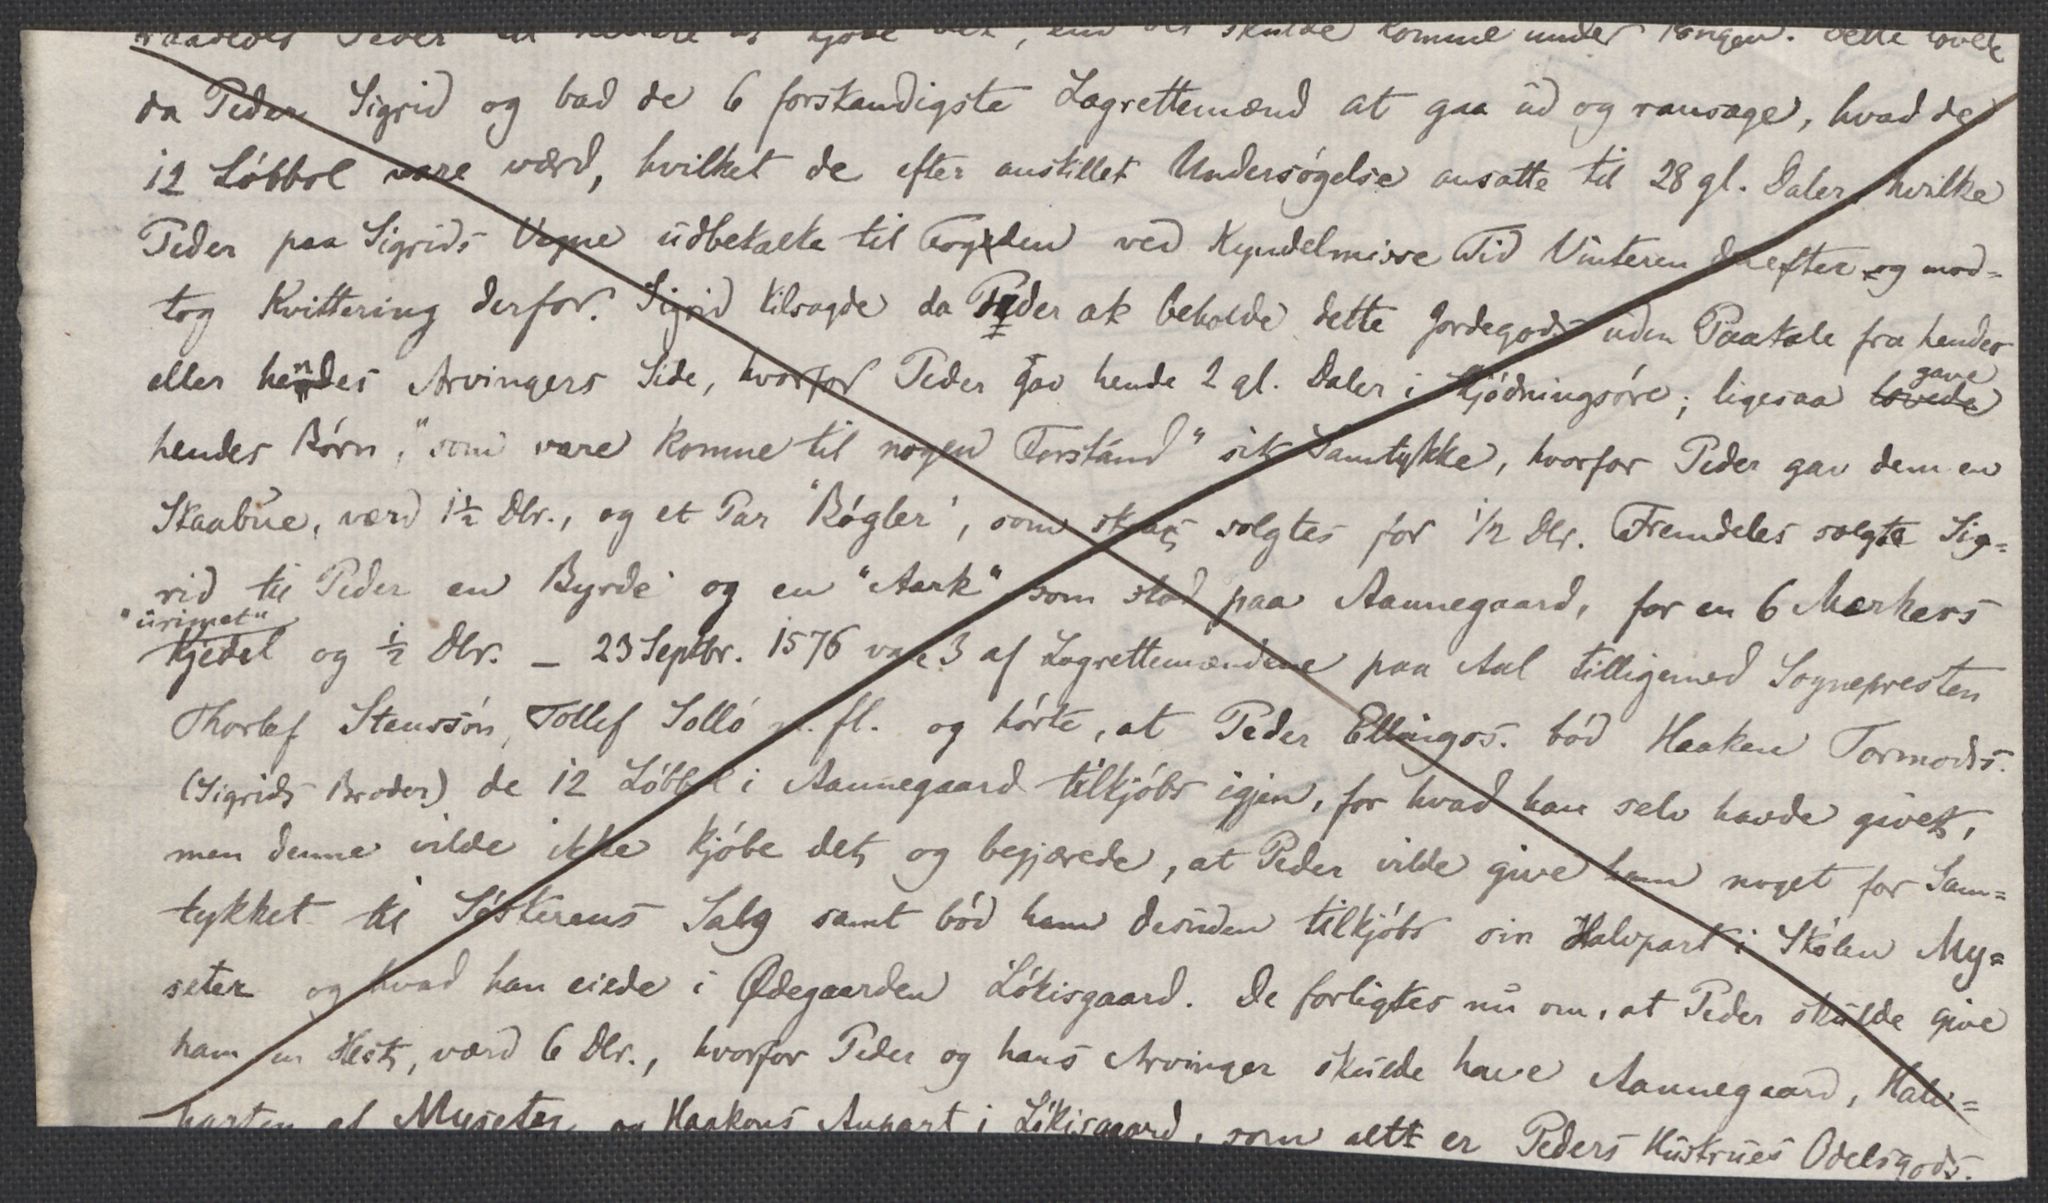 raadede Peder til hellere at kjøbe det, end det skulde komme under Kongen. Dette lovede
da Peder Sigrid og bad de 6 forstandigste Lagrettemænd at gaa ud og ransage, hvad de
12 Løbbol vare værd, hvilket de efter anstillet Undersøgelse ansatte til 28 gl. Daler, hvilke
Peder paa Sigrids Vegne udbetalte til Fogden ved Kyndelmisse Tid Vinteren derefter og mod=
tog Kvittering derfor. Sigrid tilsagde da Peder at beholde dette Jordegods uden Paatale fra hendes
eller hendes Arvingers Side, hvorfor Peder gav hende 2 gl. Daler i Skjødningsøre; ligesaa gave
hendes Børn, "som vare komne til nogen Forstand" sit Samtykke, hvorfor Peder gav dem en
Skaabue, værd 1½ Dlr., og et Par "Bøgler", som strax solgtes for 1/2 Dlr. Fremdeles solgte Sig=
rid til Peder en Byrde og en "Aark" som stod paa Aannegaard, for en 6 Merkers
"urimet"
Kjedel og ½ Dlr. — 23 Septbr. 1576 vare 3 af Lagrettemændene paa Aal tilligemed Sognepresten
Thorlef Stenssøn, Tollef Sollo m. fl. og hørte, at Peder Ellingss. bød Haaken Tormodss.
(Sigrids Broder) de 12 Løbbol i Aannegaard tilkjøbs igjen, for hvad han selv havde givet,
men denne vilde ikke kjøbe det, og begjærede, at Peder vilde give ham noget for Sam=
tykket til Søsterens Salg samt bød ham desuden tilkjøbs sin Halvpart i Stølen My=
seter og hvad han eiede i Ødegaarden Løkisgaard. De forligtes nu om, at Peder skulde give
ham en Hest, værd 6 Dlr., hvorfor Peder og hans Arvinger skulde have Aannegaard, Halv=
parten af Myseter og Haakens Anpart i Løkisgaard, som alt er Peders Hustrues Odelsgods.